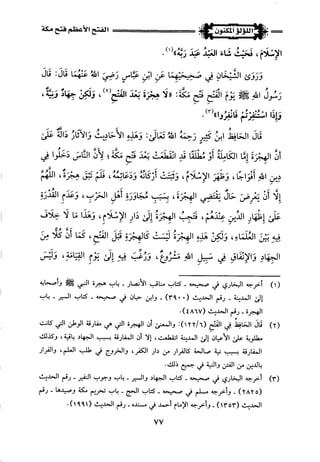 اللؤلؤ المكنون
الفتح الأعظم فتح مكة
الإسلام، فحيث شاء العبد عبد ربه(١).
وروى الشيخان في صحيحيهما عن ابن عباس رضي الله عنهما قال: قال
رسول الله ﷺ يوم الفتح فتح مكة: «لا هجرة بعد الفتح(٢)، ولكن جهاد ونية،
وإذا استنفرتم فانفروا»(٣).
قال الحافظ ابن كثير رحمه الله تعالى: وهذه الأحاديث والآثار دالة على
أن الهجرة إما الكاملة أو مطلقا قد انقطعت بعد فتح مكة؛ لأن الناس دخلوا في
دين الله أفواجا، وظهر الإسلام، وثبتت أركانه ودعائمه، فلم تبق هجرة، اللهم
إلا أن يعرض حال يقتضي الهجرة، بسبب مجاورة أهل الحرب، وعدم القدرة
على إظهار الدين عندهم، فتجب الهجرة إلى دار الإسلام، وهذا ما لا خلاف
فيه بين العلماء، ولكن هذه الهجرة ليست كالهجرة قبل الفتح، كما أن كلا من
الجهاد والإنفاق في سبيل الله مشروع، ورغب فيه إلى يوم القيامة، وليس
(١) أخرجه البخاري في صحيحه - كتاب مناقب الأنصار - باب هجرة النبي ﷺ وأصحابه
إلى المدينة - رقم الحديث (٣٩٠٠) - وابن حبان في صحيحه - كتاب السير - باب
الهجرة - رقم الحديث (٤٨٦٧).
(٢) قال الحافظ في الفتح (١٢٢/٦): والمعنى أن الهجرة التي هي مفارقة الوطن التي كانت
مطلوبة على الأعيان إلى المدينة انقطعت، إلا أن المفارقة بسبب الجهاد باقية، وكذلك
المفارقة بسبب نية صالحة كالفرار من دار الكفر، والخروج في طلب العلم، والفرار
بالدين من الفتن والنية في جميع ذلك.
(٣) أخرجه البخاري في صحيحه - كتاب الجهاد والسير - باب وجوب النفير - رقم الحديث
(٢٨٢٥) - وأخرجه مسلم في صحيحه - كتاب الحج - باب تحريم مكة وصيدها - رقم
الحديث (١٣٥٣) - وأخرجه الإمام أحمد في مسنده - رقم الحديث (١٩٩١).
٧٧